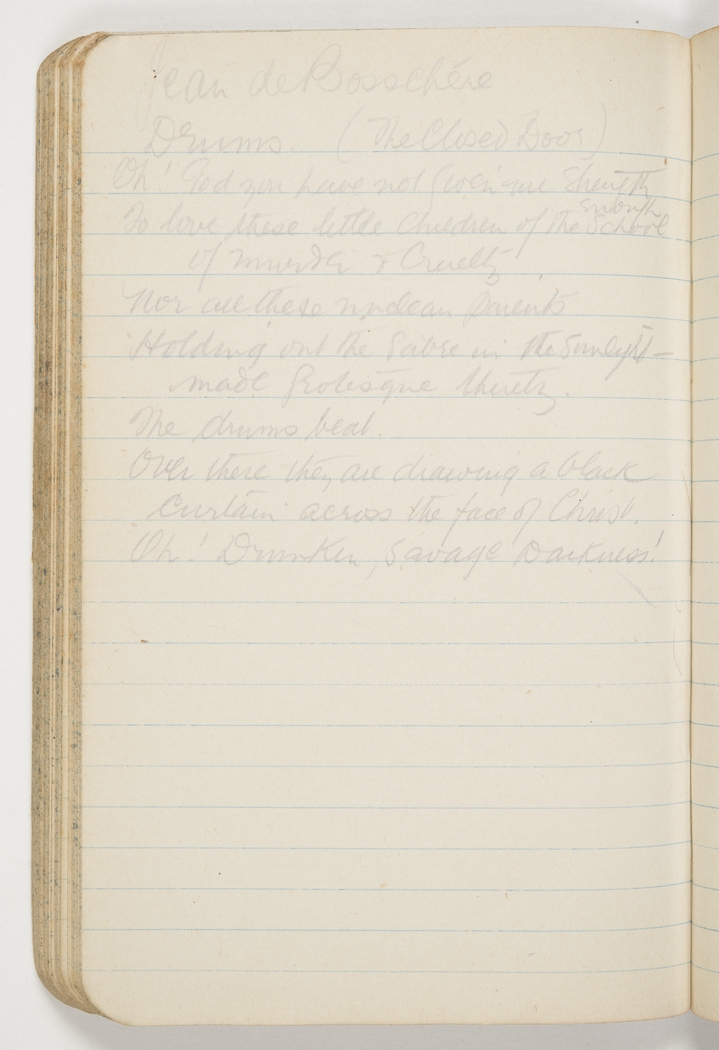 Jean de Bosschére
Drums. (The Closed Door)
Oh! God you have not given me strength
enough
To love these little children of the School
of murder & Cruelty
Nor all these unclean parents
Holding out the Sabre in the Sunlight –
made grotesque thereby.
The drums beat.
Over there they are drawing a black
Curtain across the face of Christ.
Oh! Drunken, Savage Darkness!